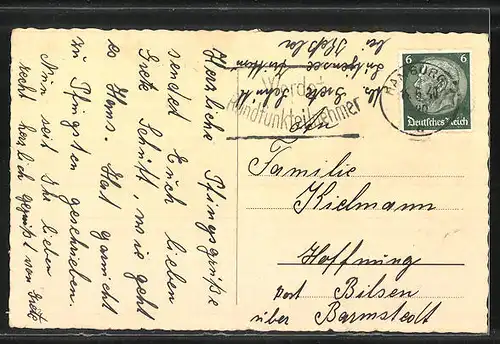 Herzliche Pfingsgrüße
sendet Euch lieben
Grete Schütt, wie geht
es Hans. Hat garnicht
zu Pfingsten geschrieben.
Nun seit Ihr lieben
recht herzlich gegrüßt von Grete
Grete Schütt
bei Kepler
Werde
Rundfunkteilnehmer
HAMBURG
6 6
Deutsches Reich
An
Familie
Kielmann
Hoffnung
post Bilsen
über Barmstedt